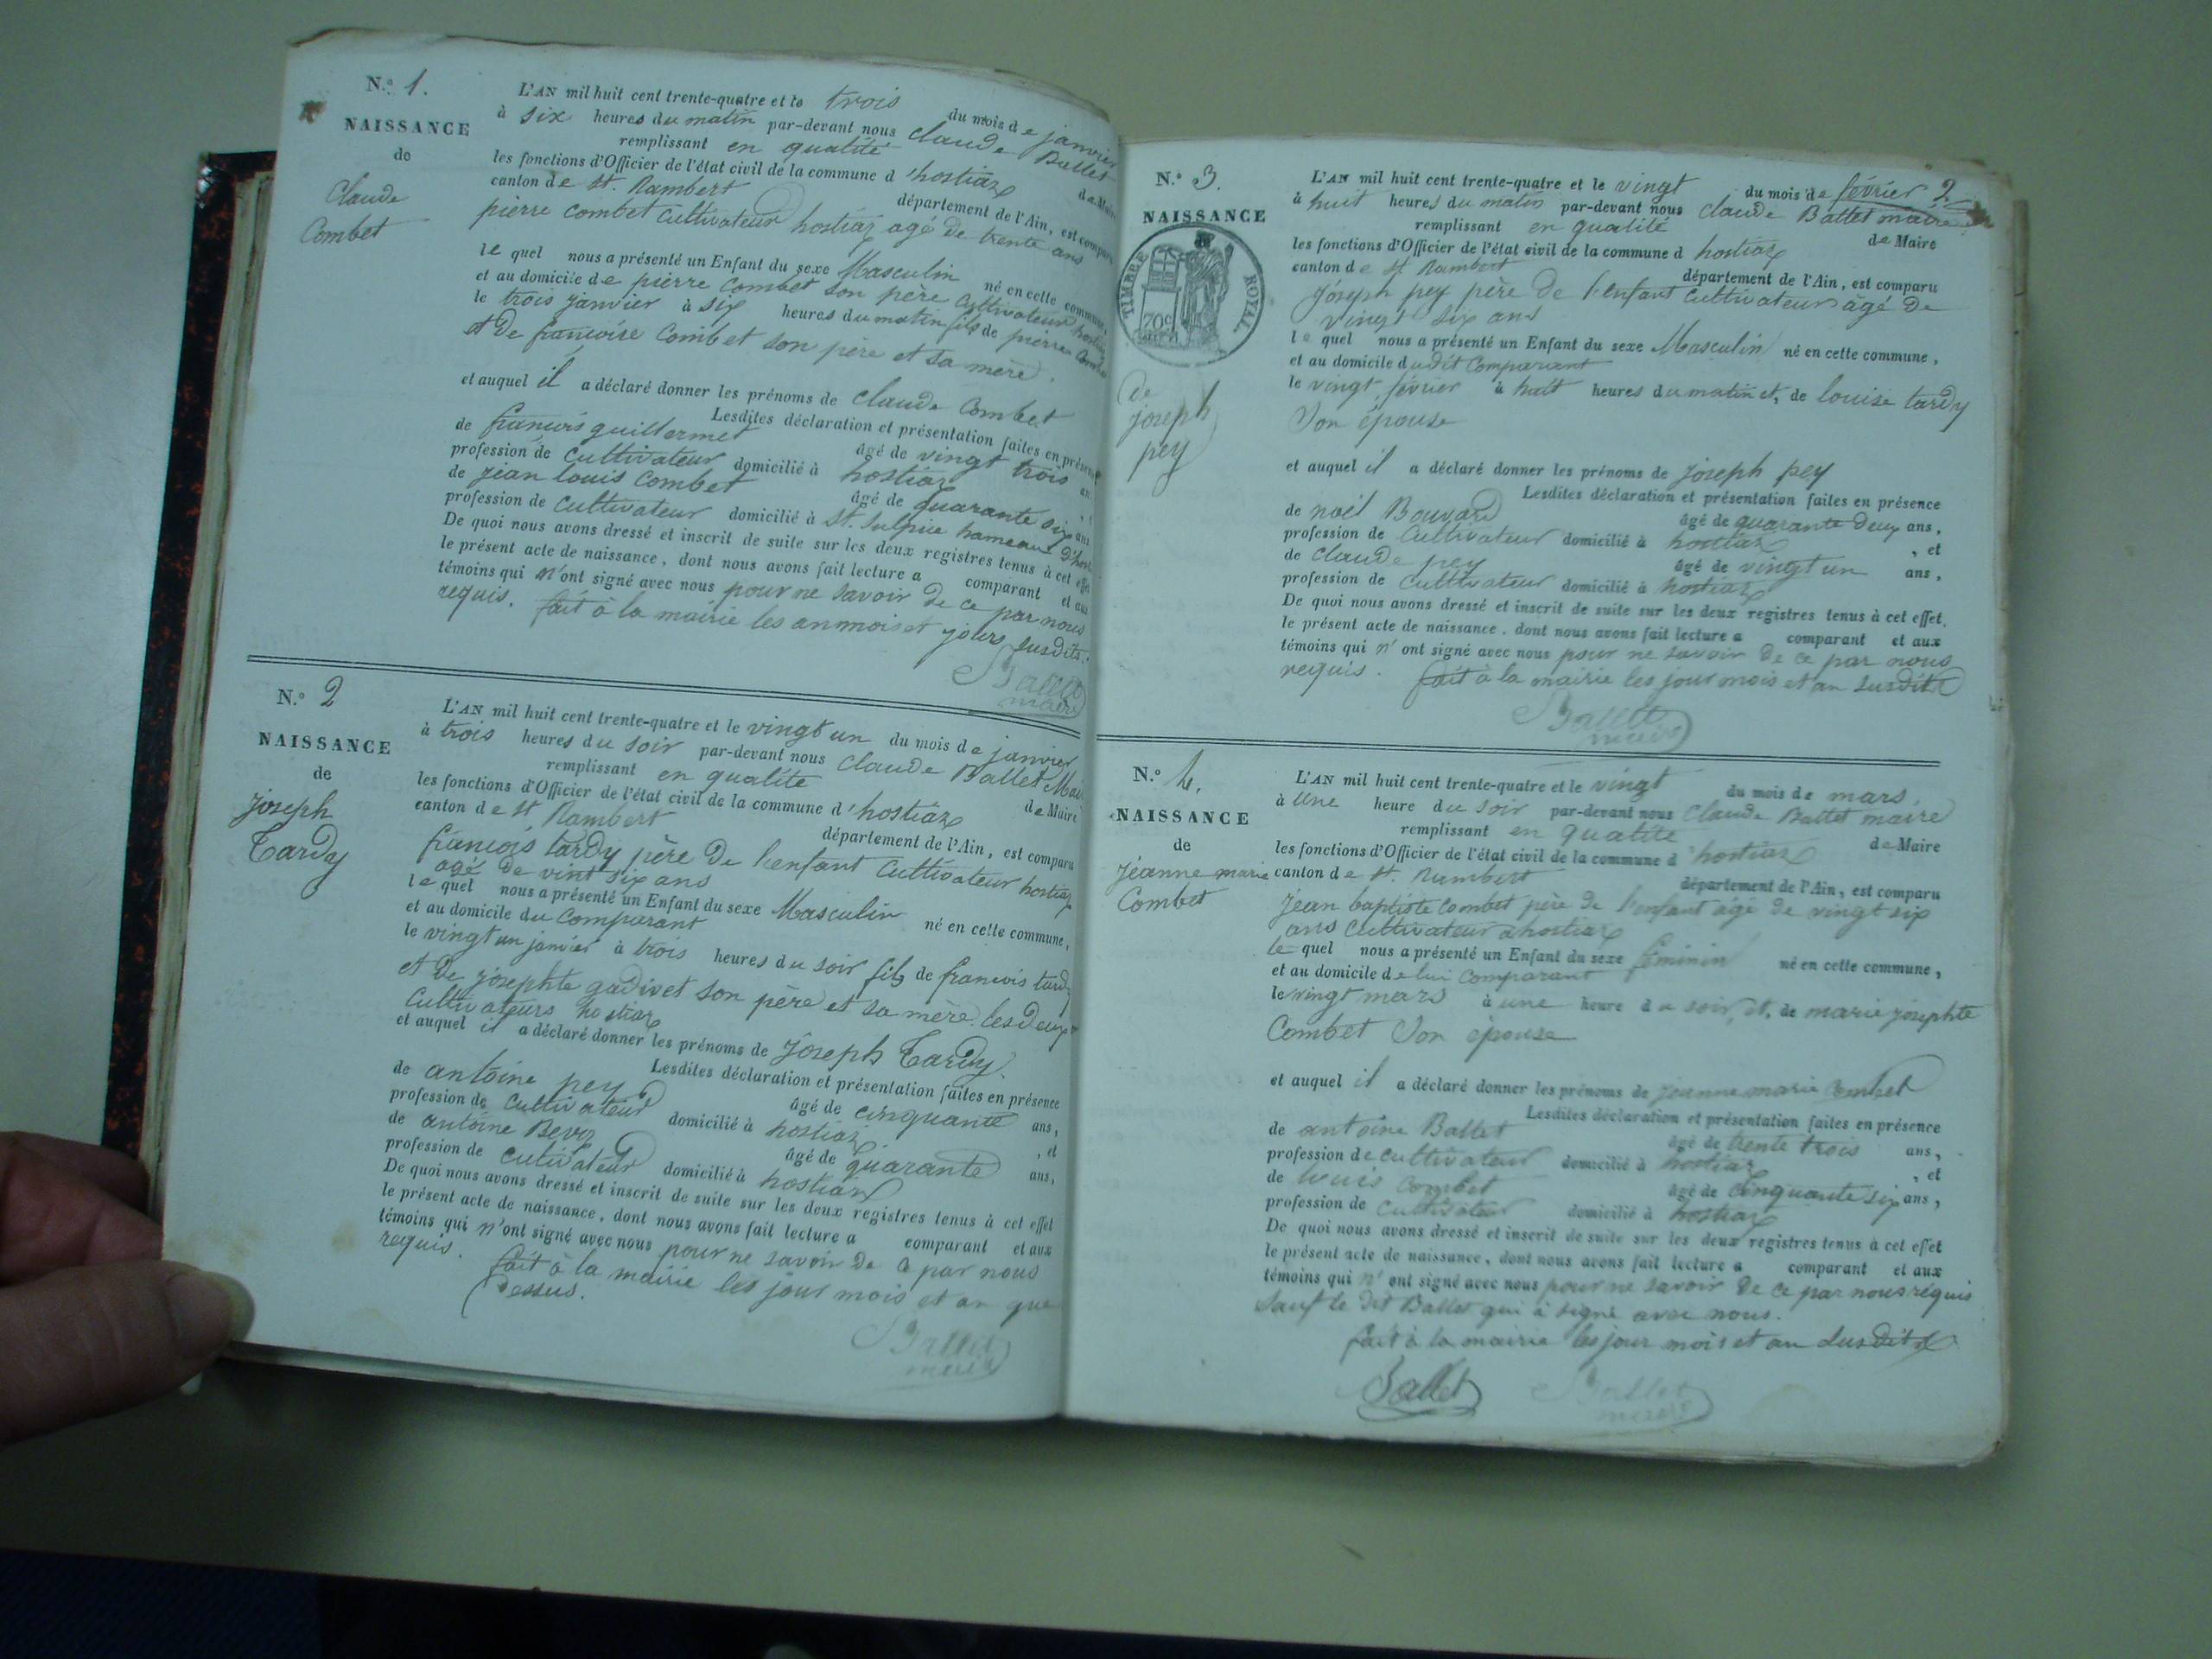 N.° 1.
NAISSANCE
de
Claude
Combet
L'AN mil huit cent trente-quatre et le trois du mois de janvier
à six heures du matin par-devant nous Claude Ballet
remplissant en qualité de Maire
les fonctions d'Officier de l'état civil de la commune d'hostiaz
canton de St. Rambert département de l'Ain, est comparu
pierre combet cultivateur hostiaz agé de trente ans
le quel nous a présenté un Enfant du sexe Masculin né en cette commune,
et au domicile de pierre Combet son père cultivateur hostiaz
le trois janvier à six heures du matin fils de pierre Combet
et de francoise Combet son père et sa mère.
et auquel il a déclaré donner les prénoms de Claude Combet
Lesdites déclaration et présentation faites en présence
de francois guillermet âgé de vingt trois ans
profession de Cultivateur domicilié à hostiaz
de jean louis Combet âgé de quarante six ans
profession de Cultivateur domicilié à St. Sulpice hameau d'hostiaz
De quoi nous avons dressé et inscrit de suite sur les deux registres tenus à cet effet
le présent acte de naissance, dont nous avons fait lecture a comparant et aux
témoins qui n'ont signé avec nous pour ne savoir de ce par nous
requis. fait à la mairie les an mois et jours susdits.
Ballet
maire
N.° 2
NAISSANCE
de
joseph
Tardy
L'AN mil huit cent trente-quatre et le vingt un du mois de janvier
à trois heures du soir par-devant nous Claude Ballet Maire
remplissant en qualité de Maire
les fonctions d'Officier de l'état civil de la commune d'hostiaz
canton de St Rambert département de l'Ain, est comparu
francois tardy père de l'enfant Cultivateur hostiaz
agé de vint six ans
le quel nous a présenté un Enfant du sexe Masculin né en cette commune,
et au domicile du Comparant
le vingt un janvier à trois heures du soir fils de francois tardy
et de josephte gadivet son père et sa mère les deux
Cultivateurs hostiaz
et auquel il a déclaré donner les prénoms de Joseph Tardy.
Lesdites déclaration et présentation faites en présence
de antoine pey âgé de cinquante ans,
profession de Cultivateur domicilié à hostiaz , et
de antoine Bevoz âgé de quarante ans,
profession de Cutivateur domicilié à hostiaz
De quoi nous avons dressé et inscrit de suite sur les deux registres tenus à cet effet
le présent acte de naissance, dont nous avons fait lecture a comparant et aux
témoins qui n'ont signé avec nous pour ne savoir de ce par nous
requis. fait à la mairie les jour mois et an que
dessus.
Ballet
maire
2.
N.° 3.
NAISSANCE
TIMBRE ROYAL
70c
de
joseph
pey
L'AN mil huit cent trente-quatre et le vingt du mois de février
à huit heures du matin par-devant nous Claude Ballet maire
remplissant en qualité de Maire
les fonctions d'Officier de l'état civil de la commune d hostiaz
canton de St Rambert département de l'Ain, est comparu
Joseph pey père de l'enfant Cultivateur âgé de
vingt six ans
le quel nous a présenté un Enfant du sexe Masculin né en cette commune,
et au domicile dudit Comparant
le vingt février à huit heures du matin et, de louise tardy
Son épouse
et auquel il a déclaré donner les prénoms de joseph pey
Lesdites déclaration et présentation faites en présence
de noël Bouvard âgé de quarante deux ans,
profession de Cultivateur domicilié à hostiaz , et
de Claude pey âgé de vingt un ans,
profession de Cultivateur domicilié à hostiaz
De quoi nous avons dressé et inscrit de suite sur les deux registres tenus à cet effet,
le présent acte de naissance, dont nous avons fait lecture a comparant et aux
témoins qui n' ont signé avec nous pour ne savoir de ce par nous
requis. fait à la mairie les jour mois et an susdits
Ballet
maire
N.° 4.
NAISSANCE
de
Jéanne marie
Combet
L'AN mil huit cent trente-quatre et le vingt du mois de mars,
à une heure du soir par-devant nous Claude Ballet maire
remplissant en qualité de Maire
les fonctions d'Officier de l'état civil de la commune d'hostiaz
canton de St. Rambert département de l'Ain, est comparu
Jean baptiste Combet père de l'enfant âgé de vingt six
ans Cultivateur a hostiaz
le quel nous a présenté un Enfant du sexe féminin né en cette commune,
et au domicile de lui Comparant
le vingt mars à une heure du soir, et, de marie josephte
Combet Son épouse
et auquel il a déclaré donner les prénoms de jeanne marie Combet
Lesdites déclaration et présentation faites en présence
de antoine Ballet âgé de trente trois ans,
profession de Cultivateur domicilié à hostiaz , et
de louis Combet âgé de cinquante six ans,
profession de Cultivateur domicilié à hostiaz
De quoi nous avons dressé et inscrit de suite sur les deux registres tenus à cet effet
le présent acte de naissance, dont nous avons fait lecture a comparant et aux
témoins qui n' ont signé avec nous pour ne savoir de ce par nous requis
Sauf le dit Ballet qui à signé avec nous.
fait à la mairie les jour mois et an susdits
Ballet
Ballet
maire